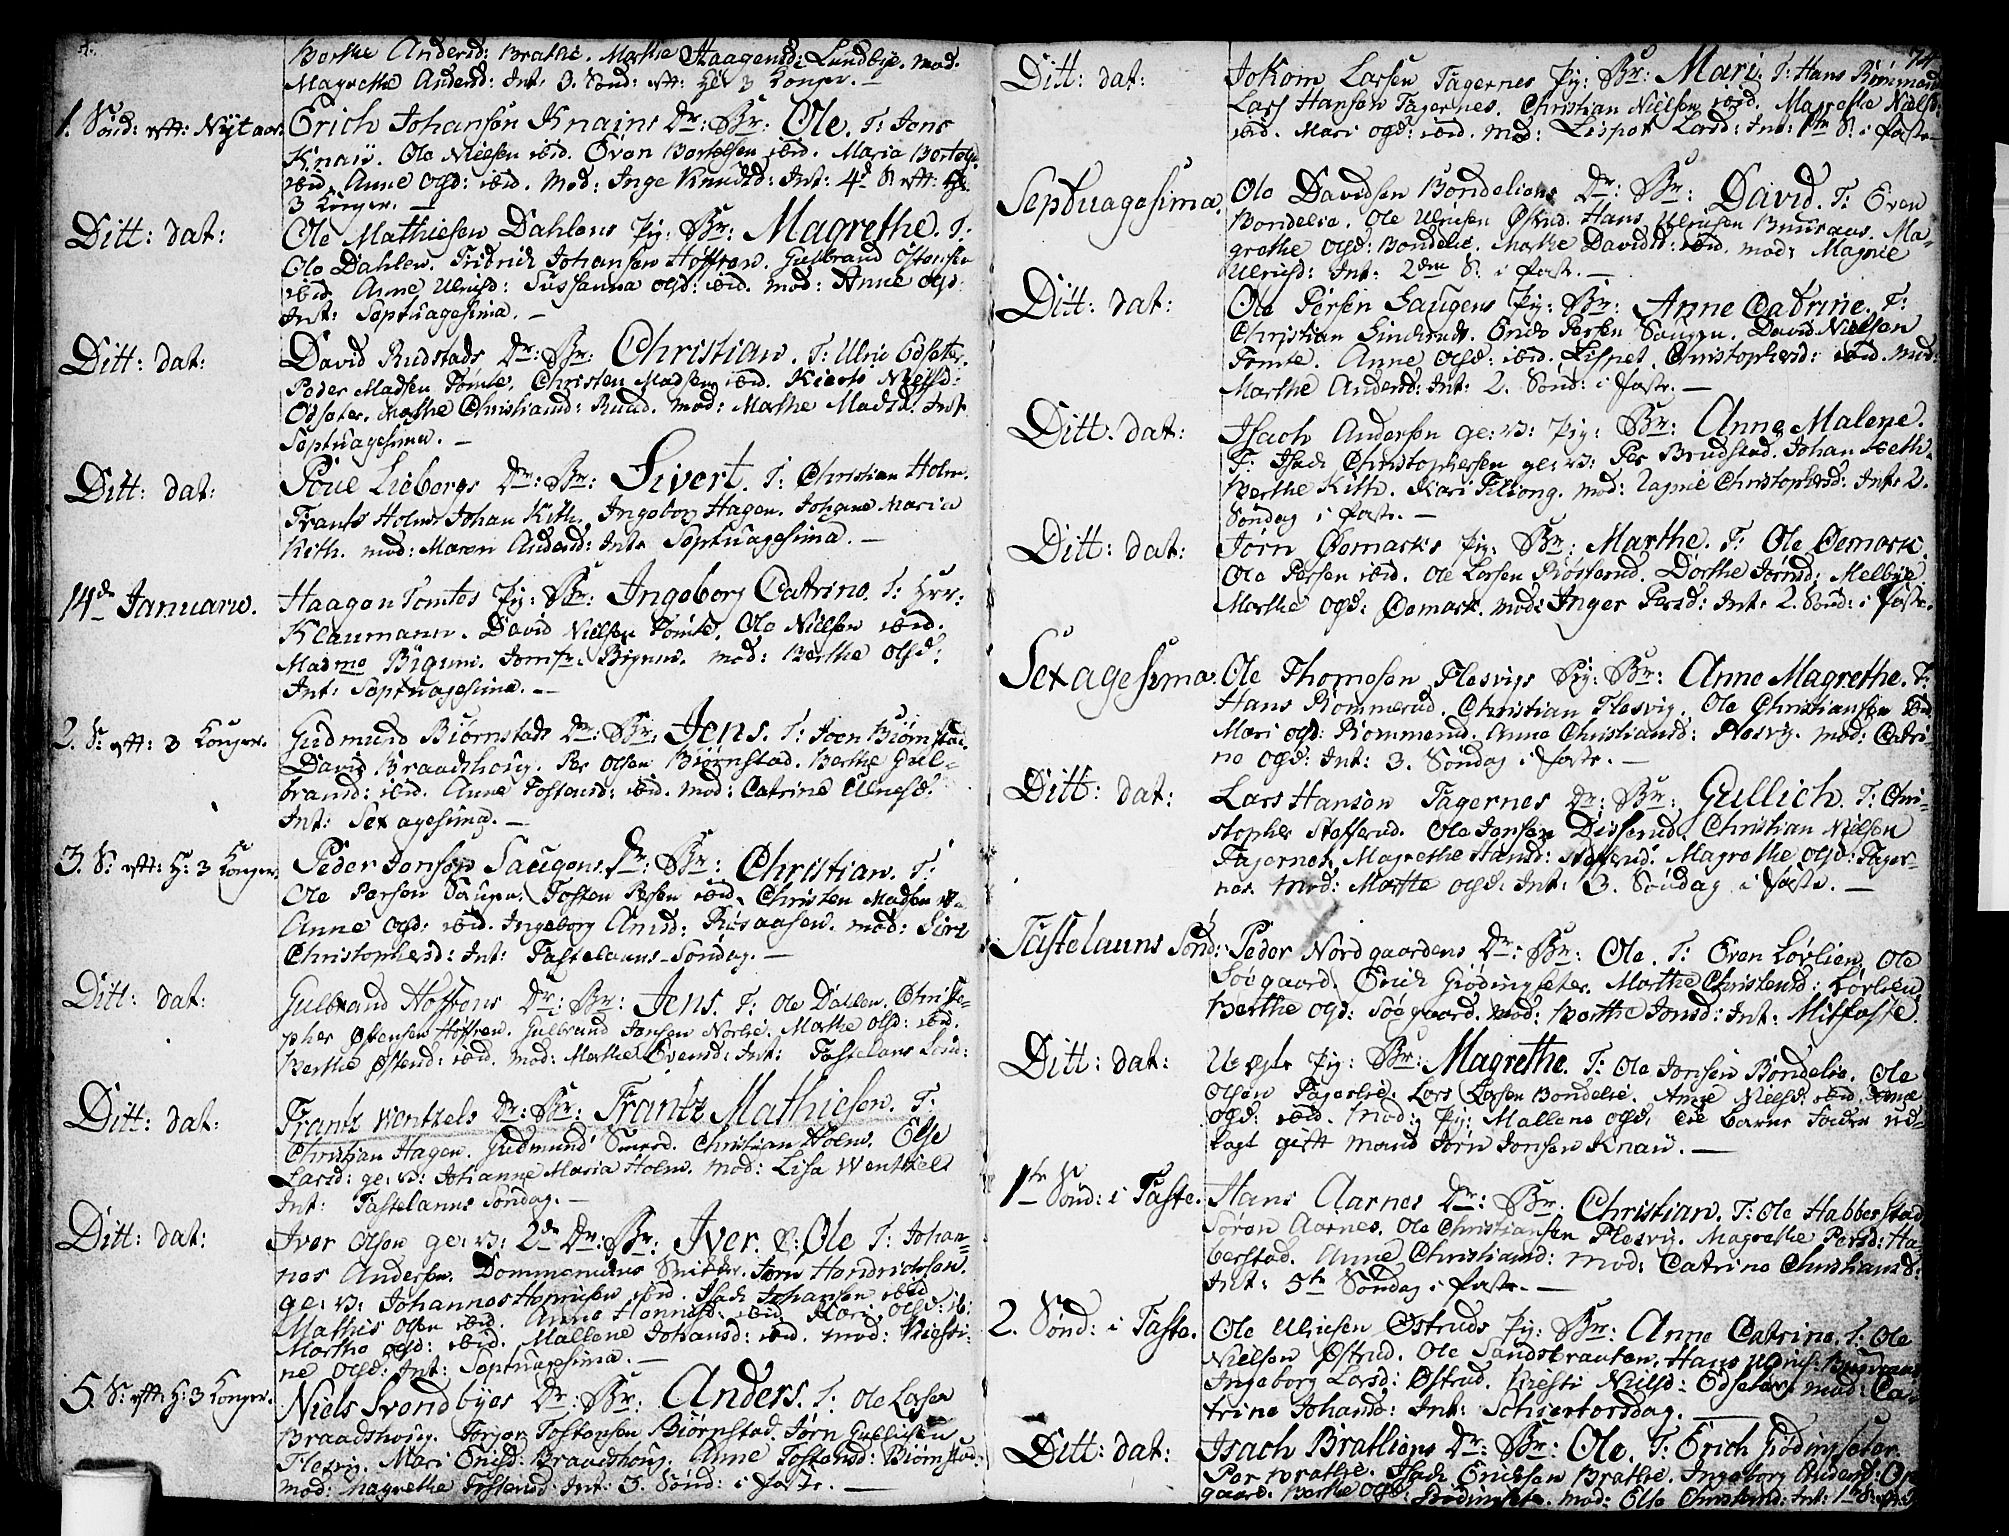 Berthe Andersd: Brathe. Marthe Haagensd: Lundbye. mod:
Magrethe Andersd: Int: 3. Sönd: eft: H: 3 Konger. —
1. Sönd: eft: Nytaar. Erich Johansøn Knains Dr: Br: Ole. T: Jens
Knaii. Ole Nielsen ibid. Even Bortelsen ibid. Maria Bortels:
ibid. Anne Olsd: ibid. Mod: Inge Knudsd: Int: 4d S: eft: H:
3 Konger. —
Ditt: dat: Ole Mathiesen Dahlens Pig: Br: Magrethe. T:
Ole Dahlen. Fridrich Johansen Hoffren. Gulbrand Östensen
ibid. Anne Ulrichsd: Sussanna Olsd: ibid. mod: Anne Olsd:
Int: Septuagesima. —
Ditt: dat: David Rudstads Dr: Br: Christian. T: Ulric Edsæter.
Peder Madsen Tomte. Christen Madsen ibid. Kiersti Nielsd:
Odsæter. Marthe Christiansd: Ruud. mod: Marthe Madsd: Int:
Septuagesima. —
Ditt: dat: Poue Liebergs Dr: Br: Sivert. T: Christian Holm.
Frants Holm. Johan Kith. Ingebor Hagen. Johane Maria
Kith. mod: Maren Andersd: Int: Septuagesima. —
14de Januarii. Haagen Tomtes Pig: Br: Ingeborg Catrine. T: Hrr:
Klaumann. David Nielsen Tomte. Ole Nielsen ibid.
Madme Bigum. Jomfr: Bigum. mod: Berthe Olsd:
Int: Septuagesima. —
2. S: eft: 3 Konger. Gudmund Biørnstads Dr: Br: Jens. T: Joen Biørnstad.
David Braadshoug. Per Olsen Biørnstad. Berthe Gul-
bransd: ibid. Anne Tostensd: ibid. mod: Catrine
Int: Sexagesima. —
3. S: eft: H: 3 Konger. Peder Jonsøn Saugens Dr: Br: Christian. T:
Ole Persen Saugen. Tosten Persen ibid. Christen Madsen
Anne Olsd: ibid. Ingeborg Amsd: Riisaasen. mod: Siri
Christophersd: Int: Fastelauns-Söndag. —
Ditt: dat: Gulbrand Hoffrens Dr: Br: Jens. T: Ole Dahlen. Christo-
pher Østensen Hoffren. Gulbrand Jansen Norbie. Marthe Olsd: ibid.
Berthe Østensd: ibid. mod: Marthe Evensd: Int: Fastelans Sönd:
Ditt: dat: Frantz Wentzels Dr: Br: Frantz Mathiesen. T:
Christian Hagen. Gudmund Smerd. Christian Holm. Else
Larsd: ge: v: Johanne Maria Holm. mod: Lisa Wentziels
Int: Fastelanns Söndag. —
Ditt: dat: Iver Olsen ge: v: 2de Dr: Br: Iver. & Ole T: Johan-
nes Andersen. Dommenicus Snitter. Jørn Hendrichsen.
ge: v: Johannes Henricsen ibid. Isach Johansen ibid.
Mathis Olsen ibid. Anne Hennisd: ibid. Kari Olsd: ib:
Marthe Olsd: ibid. Mallene Johansd: ibid. mod: Kiersti-
ne Olsd: Int: Septuagesima. —
5. S: eft: H: 3 Konger. Niels Svendbyes Dr: Br: Anders. T: Ole Larsen
Braadshoug. Torger Tostensen Biørnstad. Jørn Gullicsen
Flesvig. Mari Ericsd: Braadshoug. Anne Tostensd: Biørnstad.
mod: Magrethe Tostensd: Int: 3. Sönd: i faste. —
74
Ditt: dat: Jokom Larsen Tagernes Pig: Br: Mari. T: Hans Rømmerud
Lars Hansen Tagernes. Christian Nielsen ibid. Magrethe Nielsd:
ibid. Mari Olsd: ibid. mod: Lispet Larsd: Int: 1ste S: i faste —
Septuagesima. Ole Davidsen Bondeliens Dr: Br: David. T: Even
Bondelie. Ole Ulricsen Østrud. Hans Ulricsen Buuraas. Ma-
grethe Olsd: Bondelie. Marthe Davidsd: ibid. mod: Magnil
Ulrichsd: Int: 2den S: i faste. —
Ditt: dat: Ole Persen Saugens Pig: Br: Anne Catrine. T:
Christian Linderud. Erich Persen Saugen. David Nielsen
Tomte. Anne Olsd: ibid. Lispet Christophersd: ibid. mod:
Marthe Andersd: Int: 2. Sönd: i faste. —
Ditt. dat: Isach Andersøn ge: v: Pig: Br: Anne Malene.
T: Isach Christophersen ge: v: Per Brudstad. Johan Keth.
Berthe Kith. Kari Pillong. mod: Magnil Christophersd: Int: 2.
Söndag i faste. —
Ditt: dat: Jørn Oemarks Pig: Br: Marthe. T: Ole Oemark.
Ole Persen ibid. Ole Larsen Røsterud. Dorthe Jörnsd: Melbye.
Marthe Olsd: Oemark. mod: Inger Persd: Int: 2. Sönd: i faste.
Sexagesima. Ole Thomesen Flesvigs Pig: Br: Anne Magrethe. T:
Hans Rommerud. Christian Flesvig. Ole Christiansen ibid.
Mari Olsd: Rommerud. Anne Christiansd: Flesvig. mod: Catri-
ne Olsd: Int: 3. Söndag i faste. —
Ditt: dat: Lars Hansøn Tagernes Dr: Br: Gullich. T: Chri-
stopher Stofferud. Ole Jonsen Disserud. Christian Nielsen
Tagernes. Magrethe Hansd: Stofferud. Magrethe Olsd: Tager-
nes. Mod: Marthe Olsd: Int: 3. Söndag i faste. —
Fastelauns Sönd: Peder Nordgaardens Dr: Br: Ole. T: Even Lövlien. Ole
Söegaard. Erich Grödingsæter. Marthe Christensd: Lövlien.
Berthe Olsd: Söegaard. mod: Berthe Jonsd: Int: Mitfaste.
Ditt: dat: U-ægte Pig: Br: Magrethe. T: Ole Jonsen Bondelie. Ole
Olsen Fagerlie. Lars Larsen Bondelie. Anne Nielsd: ibid. Anne
Olsd: ibid. Mod: Pig: Mallene Olsd: til barne fader ud-
lagt gift mand Jørn Jonsen Knaii. —
1ste Sönd: i Faste. Hans Aarnes Dr: Br: Christian. T: Ole Habberstad
Søren Aarnes. Ole Christiansen Flesvig. Magrethe Persd: Ha-
berstad. Anne Christiansd: mod: Catrine Christiansd:
Int: 5te Söndag i faste. —
2. Sönd: i Faste. Ole Ulricsen Østruds Pig: Br: Anne Catrine. T: Ole
Nielsen Østrud. Ole Sandsbraaten. Hans Ulrichs: Buuraas
Ingeborg Larsd: Østrud. Kiersti Nielsd: Edsæter. mod: Ca-
trine Johansd: Int: Schiertorsdag. —
Ditt: dat: Isach Brathiens Dr: Br: Ole. T: Erich Grödingsæter.
Per Brathie. Isach Ericksen Brathe. Ingeborg Andersd:
gaard. Berthe Olsd: Grödingsæter. mod: Else Christensd: Int: